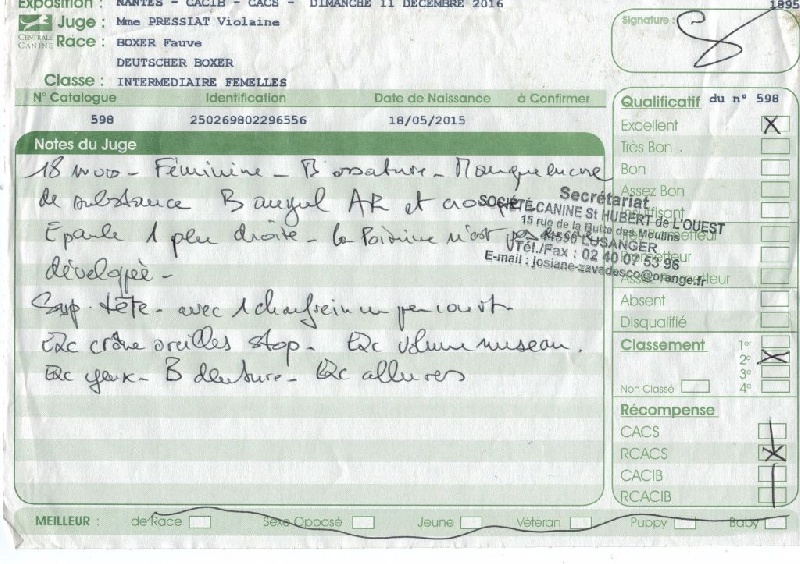 Exposition : NANTES - CACIB - CACS - DIMANCHE 11 DECEMBRE 2016
1895
Juge : Mme PRESSIAT Violaine
Signature :
CENTRALE CANINE
Race : BOXER Fauve
DEUTSCHER BOXER
Classe : INTERMEDIAIRE FEMELLES
N° Catalogue Identification Date de Naissance à Confirmer
598 250269802296556 18/05/2015
Qualificatif du n° 598
Excellent X
Très Bon
Bon
Assez Bon
Absent
Disqualifié
Classement 1°
2° X
3°
Non Classé 4°
Récompense
CACS
RCACS X
CACIB
RCACIB
Notes du Juge
18 mois - Féminine - B ossature - Manque encore
de substance B angul AR et
Epaule 1 peu droite - la Poitrine n'est pas
développée -
Sup. tête - avec 1 chanfrein un peu court -
Exc crâne oreilles stop - Exc volume museau.
Exc yeux - B denture - Exc allures
Secrétariat
SOCIÉTÉ CANINE St HUBERT de L'OUEST
15 rue de la Butte des Moulins
44590 LUSANGER
Tél./Fax : 02 40 07 53 96
E-mail : josiane-zavadesco@orange.fr
MEILLEUR : de Race Sexe Opposé Jeune Vétéran Puppy Baby